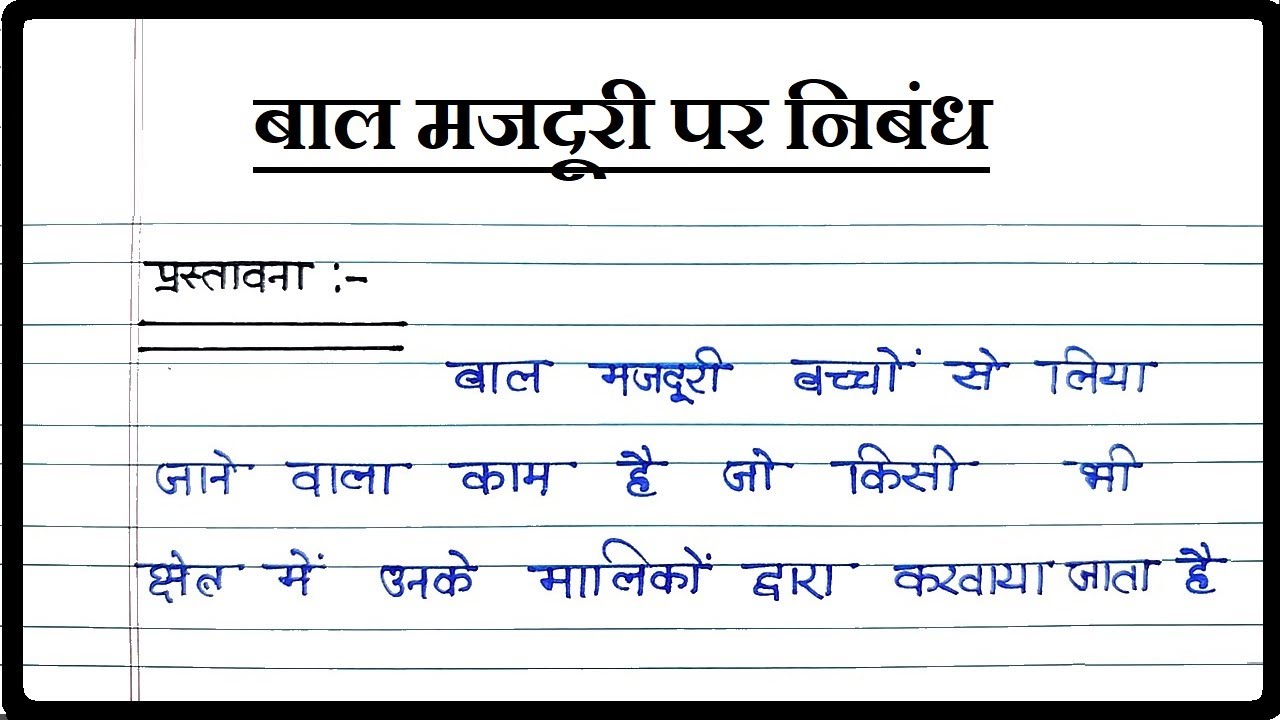 बाल मजदूरी पर निबंध
प्रस्तावना :-
बाल मजदूरी बच्चों से लिया
जाने वाला काम है जो किसी भी
क्षेत्र में उनके मालिकों द्वारा करवाया जाता है